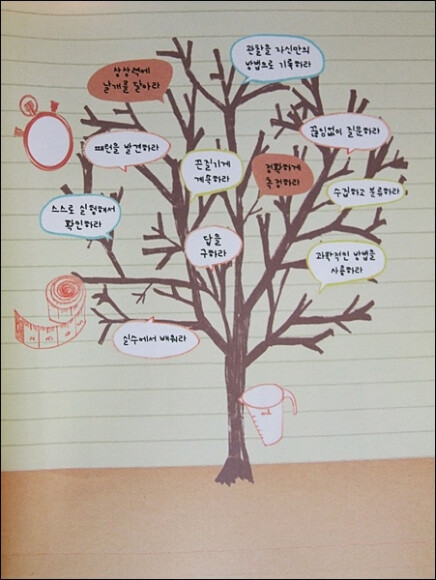 관찰을 자신만의
방법으로 기록하라
상상력에
날개를 달아라
끊임없이 질문하라
패턴을 발견하라
끈질기게
계속하라
정확하게
측정하라
수집하고 분류하라
스스로 실험해서
확인하라
답을
구하라
과학적인 방법을
사용하라
실수에서 배워라